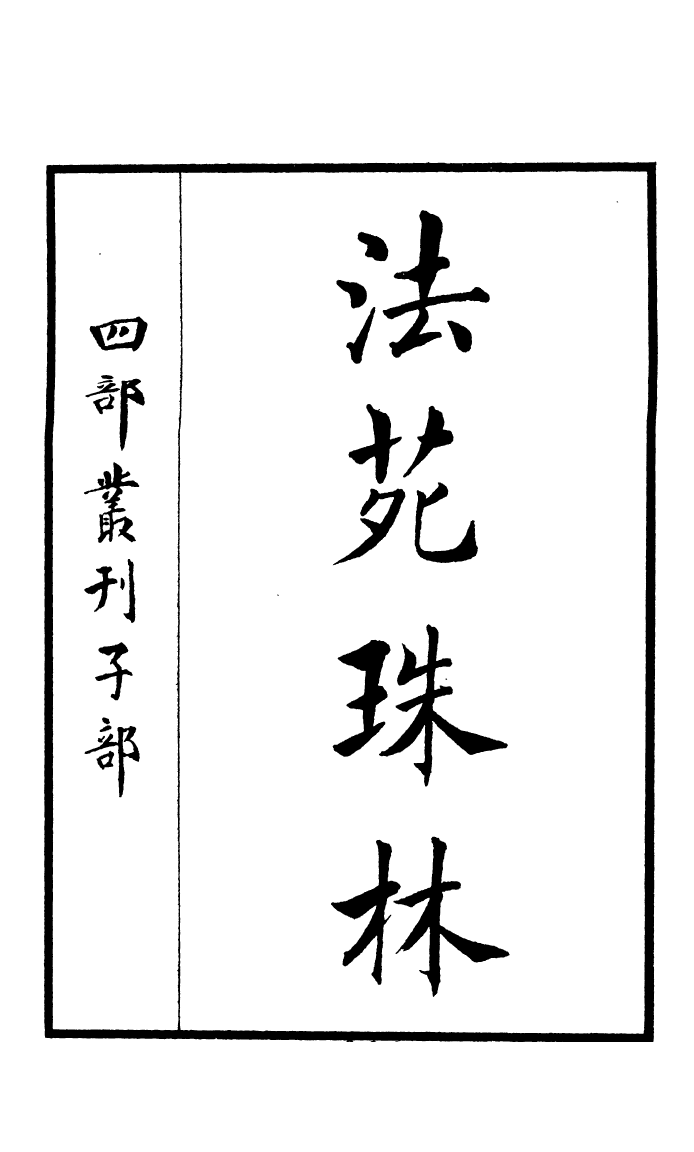 法苑珠林
四部叢刊子部